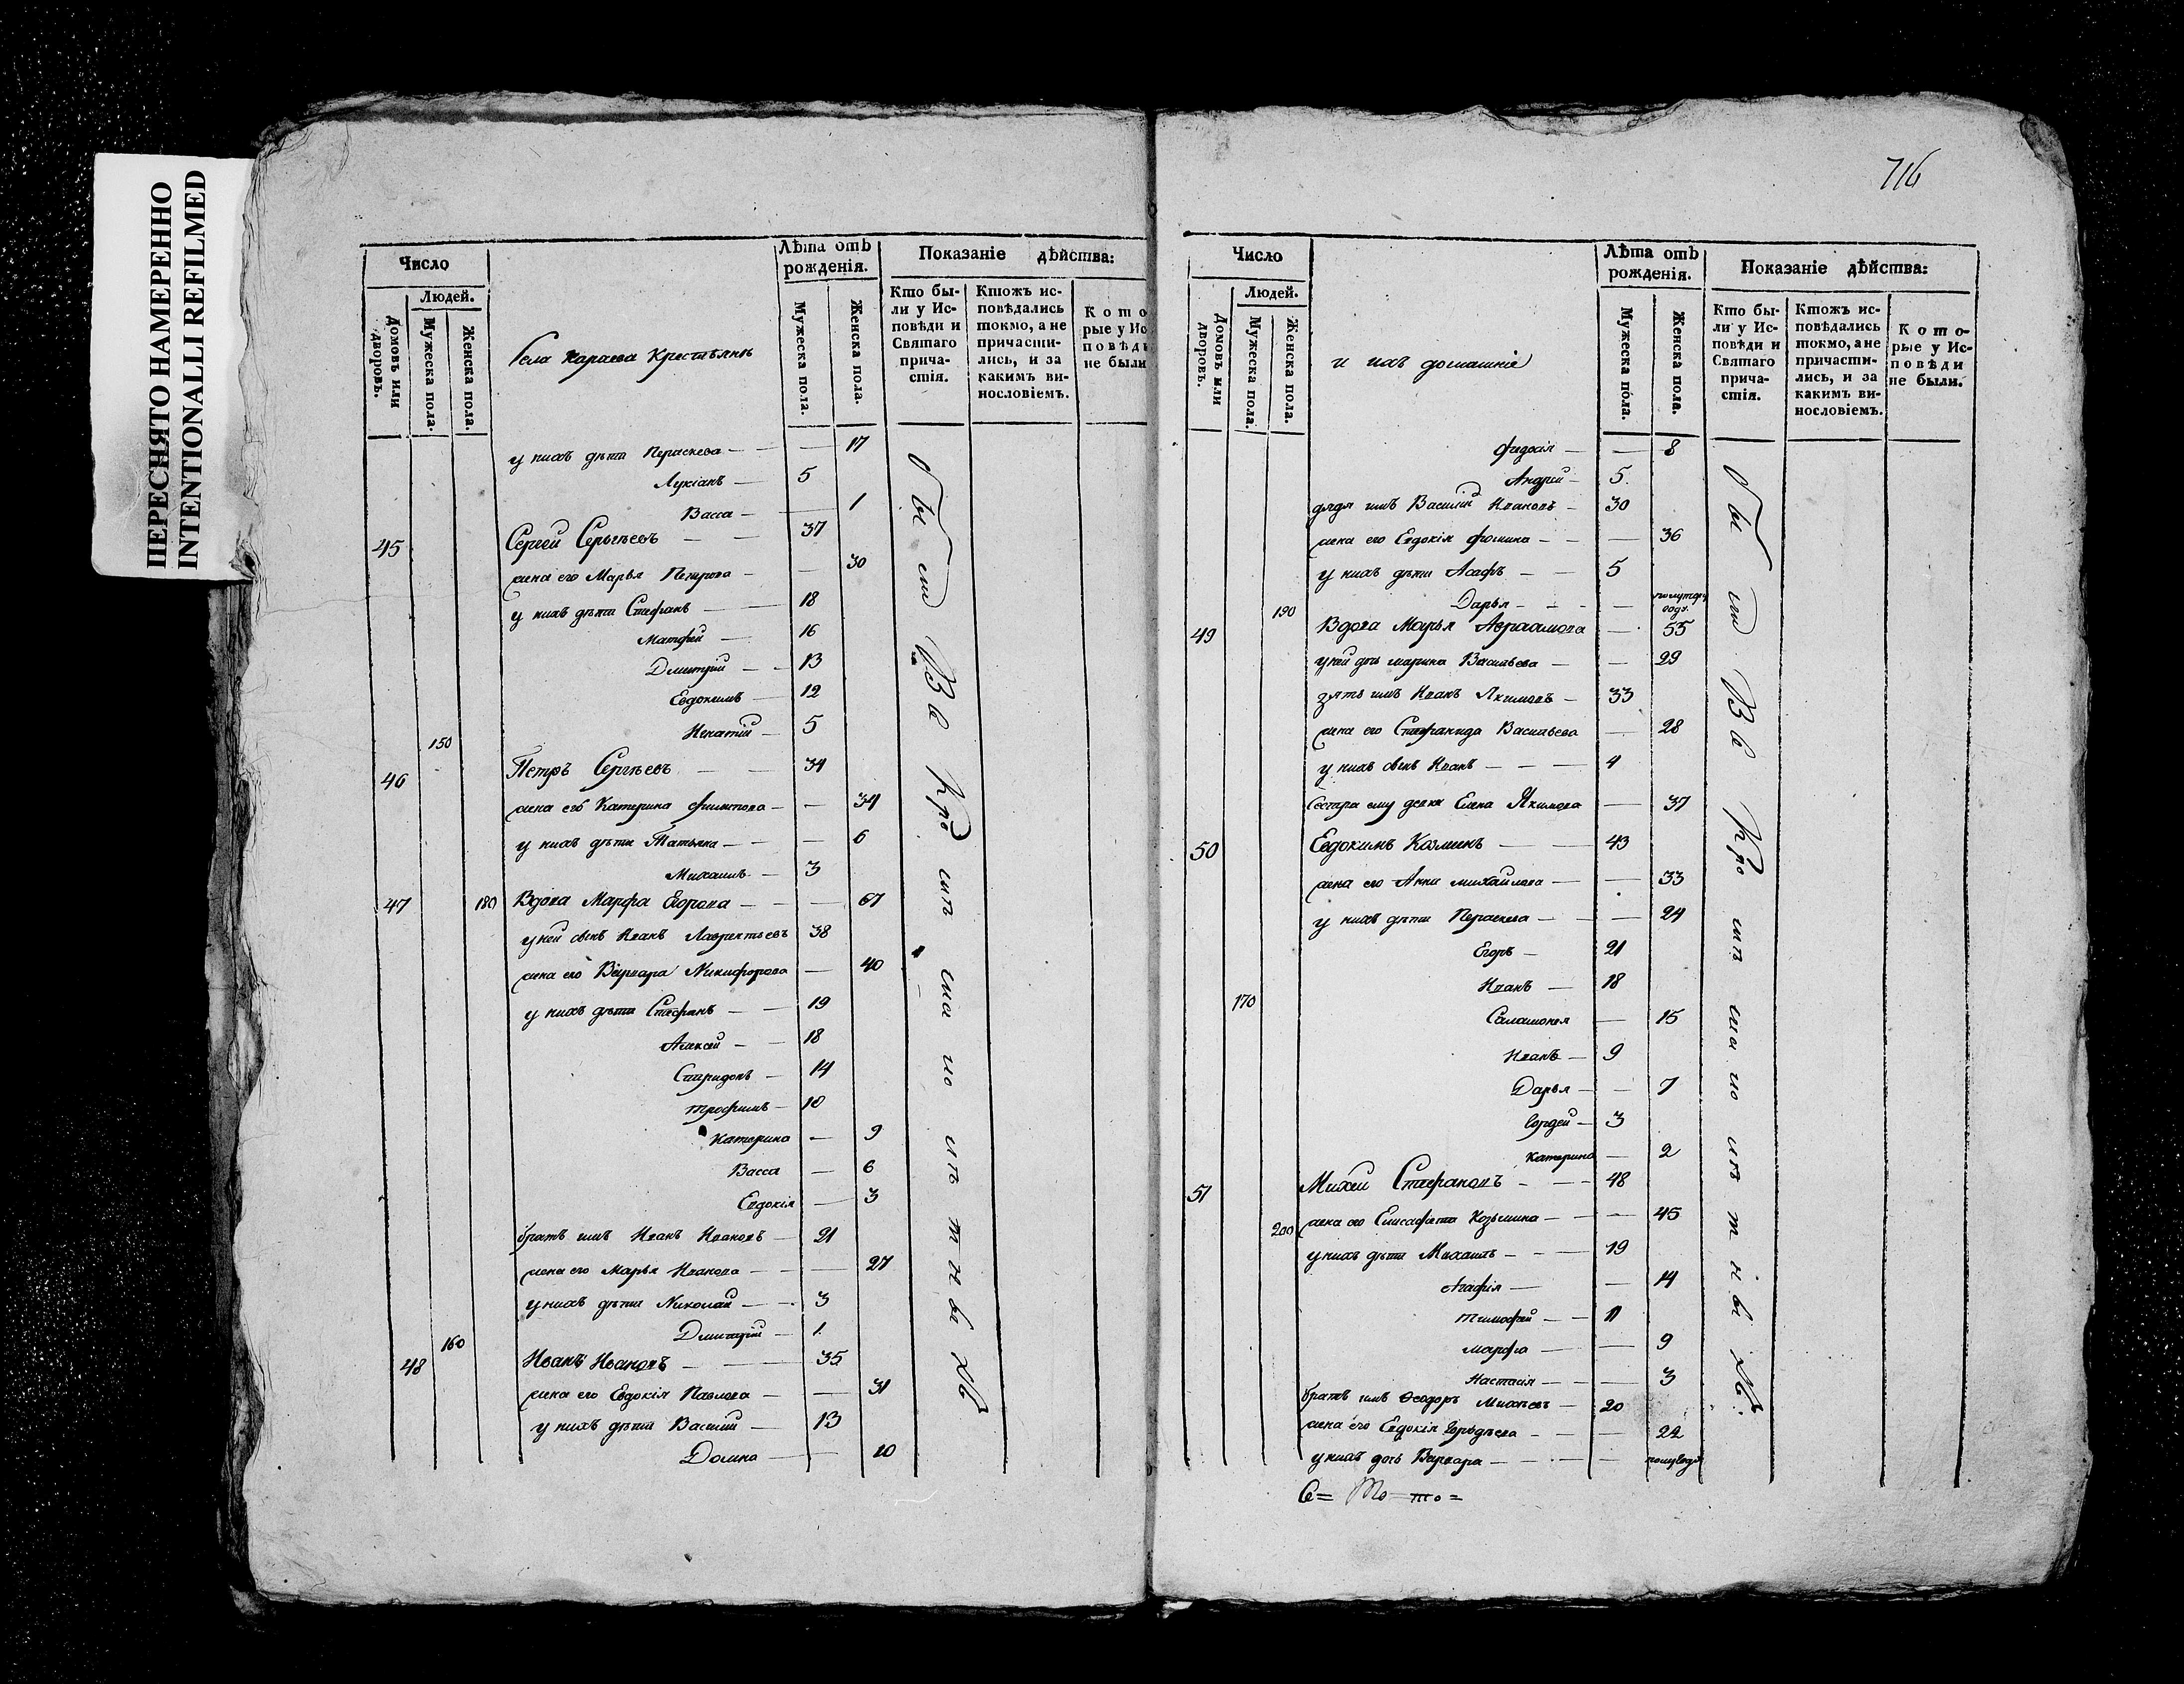 ПЕРЕСНЯТО НАМЕРЕННО
INTENTIONALLI REFILMED
Число
Людей.
Домовъ или дворовъ.
Мужеска пола.
Женска пола.
Села Караева Крестьянъ
Лѣта отъ рожденія.
Мужеска пола.
Женска пола.
Показаніе дѣйства:
Кто бы-
ли у Ис-
повѣди и
Святаго
прича-
стія.
Ктожъ ис-
повѣдались
токмо, а не
причасти-
лись, и за
какимъ ви-
нословіемъ.
Кото
рые у Ис
повѣди
не были
у нихъ дѣти Пераскева — — 17
Лукіанъ — 5
Васса — — 1
45 Сергей Сергѣевъ — — 37
жена его Марья Петрова — — 30
у нихъ дѣти Стефанъ — — 18
Матфей — 16
Дмитрій — — 13
Евдокимъ — 12
Игнатій — 5
150
46 Петръ Сергѣевъ — — 34
жена его Катерина Филипова — — 34
у нихъ дѣти Татьяна — — — 6
Михаилъ — 3
47 180 Вдова Марфа Егорова — — — 67
у ней сынъ Иванъ Лаврентьевъ 38
жена его Варвара Никифорова — 40
у нихъ дѣти Стефанъ — — 19
Алексей — — 18
Спиридонъ — 14
Трофимъ — 10
Катерина — 9
Васса — 6
Евдокія — 3
братъ имъ Иванъ Ивановъ — 21
жена его Марья Иванова — — — 27
у нихъ дѣти Николай — — 3
Дмитрій — 1
160
48 Иванъ Ивановъ — — — 35
жена его Евдокія Павлова — — 31
у нихъ дѣти Василий — 13
Домна — — 10
716
Число
Людей.
Домовъ или дворовъ.
Мужеска пола.
Женска пола.
и ихъ домашніе
Лѣта отъ рожденія.
Мужеска пола.
Женска пола.
Показаніе дѣйства:
Кто бы-
ли у Ис-
повѣди и
Святаго
прича-
стія.
Ктожъ ис-
повѣдались
токмо, а не
причасти-
лись, и за
какимъ ви-
нословіемъ.
Кото-
рые у Ис-
повѣди
не были.
Федосія — — 8
Андрей — 5
дядя имъ Василій Ивановъ — 30
жена его Евдокія Фомина — — — 36
у нихъ дѣти Асафъ — — 5
190 Дарья — — — —
49 Вдова Марья Авраамова — 55
у ней дочь Марина Васильева — — 29
зять имъ Иванъ Якимовъ — 33
жена его Стефанида Васильева — 28
у нихъ сынъ Иванъ — — — 4
Сестра ему девка Елена Якимова — 37
50 Евдокимъ Козминъ — — 43
жена его Анна Михайлова — — 33
у нихъ дѣти Пераскева — — — 24
Егоръ — 21
Иванъ — 18
170
Саламонея — 15
Иванъ — 9
Дарья — — 7
Гордей — 3
Катерина — 2
51 Михей Стефановъ — — — 48
200 жена его Елисафета Козьмина — — — 45
у нихъ дѣти Михаилъ — — — 19
Агафія — — 14
Тимофей — — 11
Марфа — — 9
Настасія — — 3
братъ имъ Ѳеодоръ Михѣевъ — 20
жена его Евдокія Гордѣева — — — 22
у нихъ дочь Варвара — — — — полугода